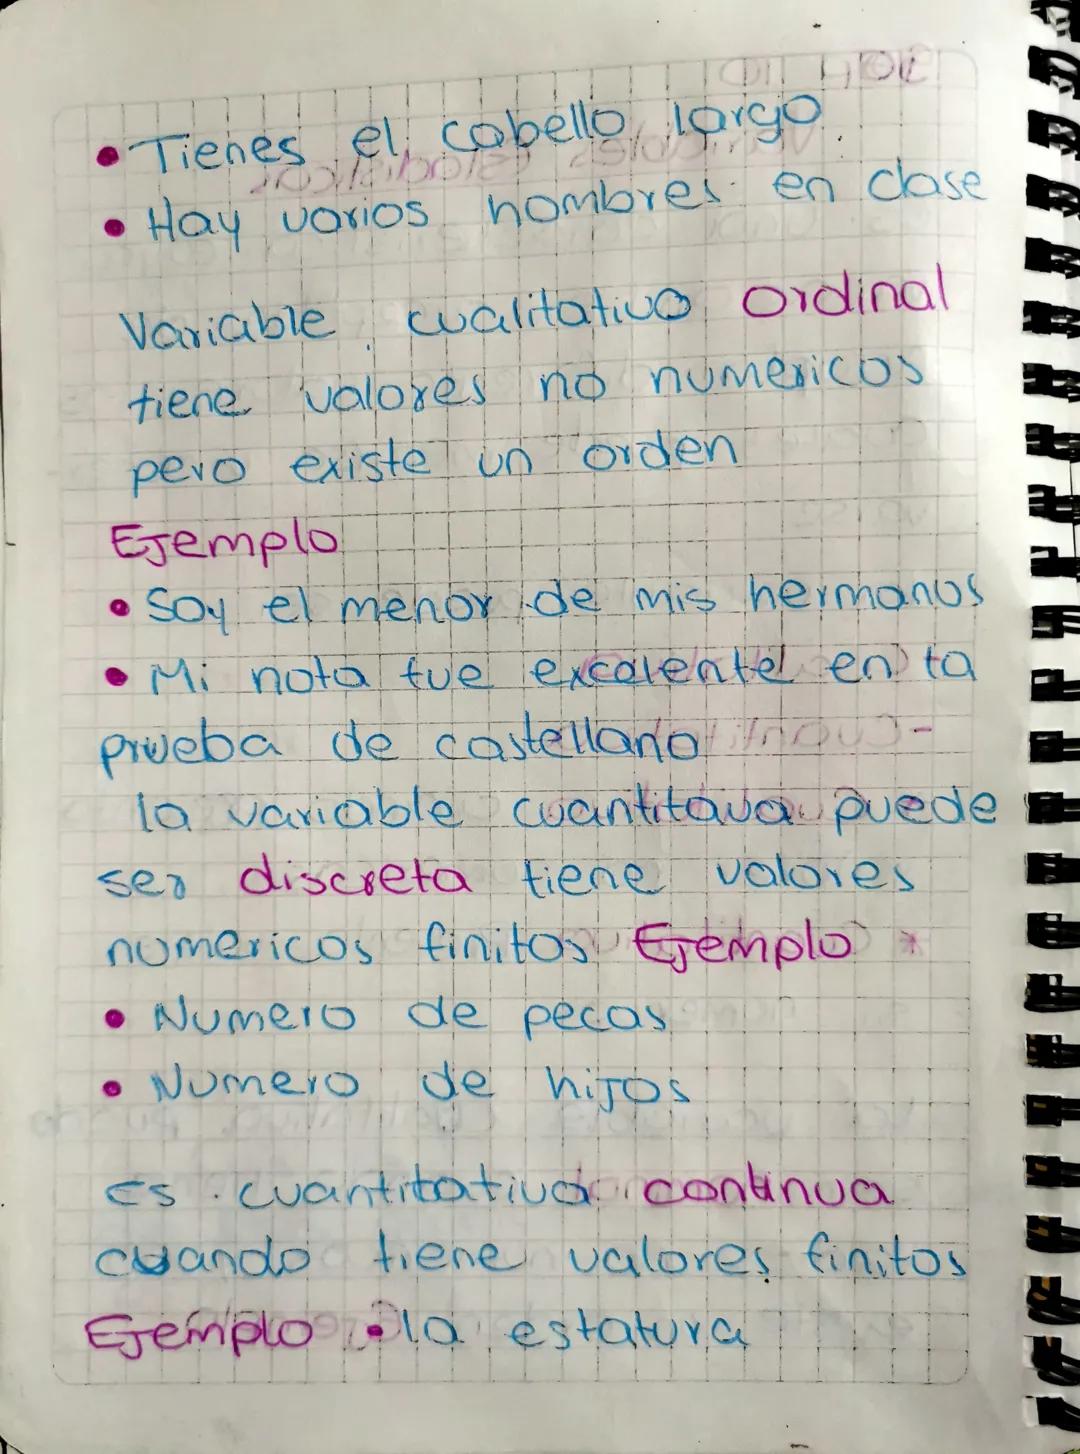 • Tienes el cabello largo
• Hay varios hombres en clase
Variable cualitativo Ordinal
tiene valores no numericos
pero existe un orden
Ejemplo
• Soy el menor de mis hermanos
• Mi nota fue excelente en la
prueba de castellano
la variable cuantitava puede
ser discreta tiene valores
numericos finitos Ejemplo *
• Numero de pecas
• Numero de hijos
Es cuantitativa continua
cuando tiene valores finitos
Ejemplo • la estatura